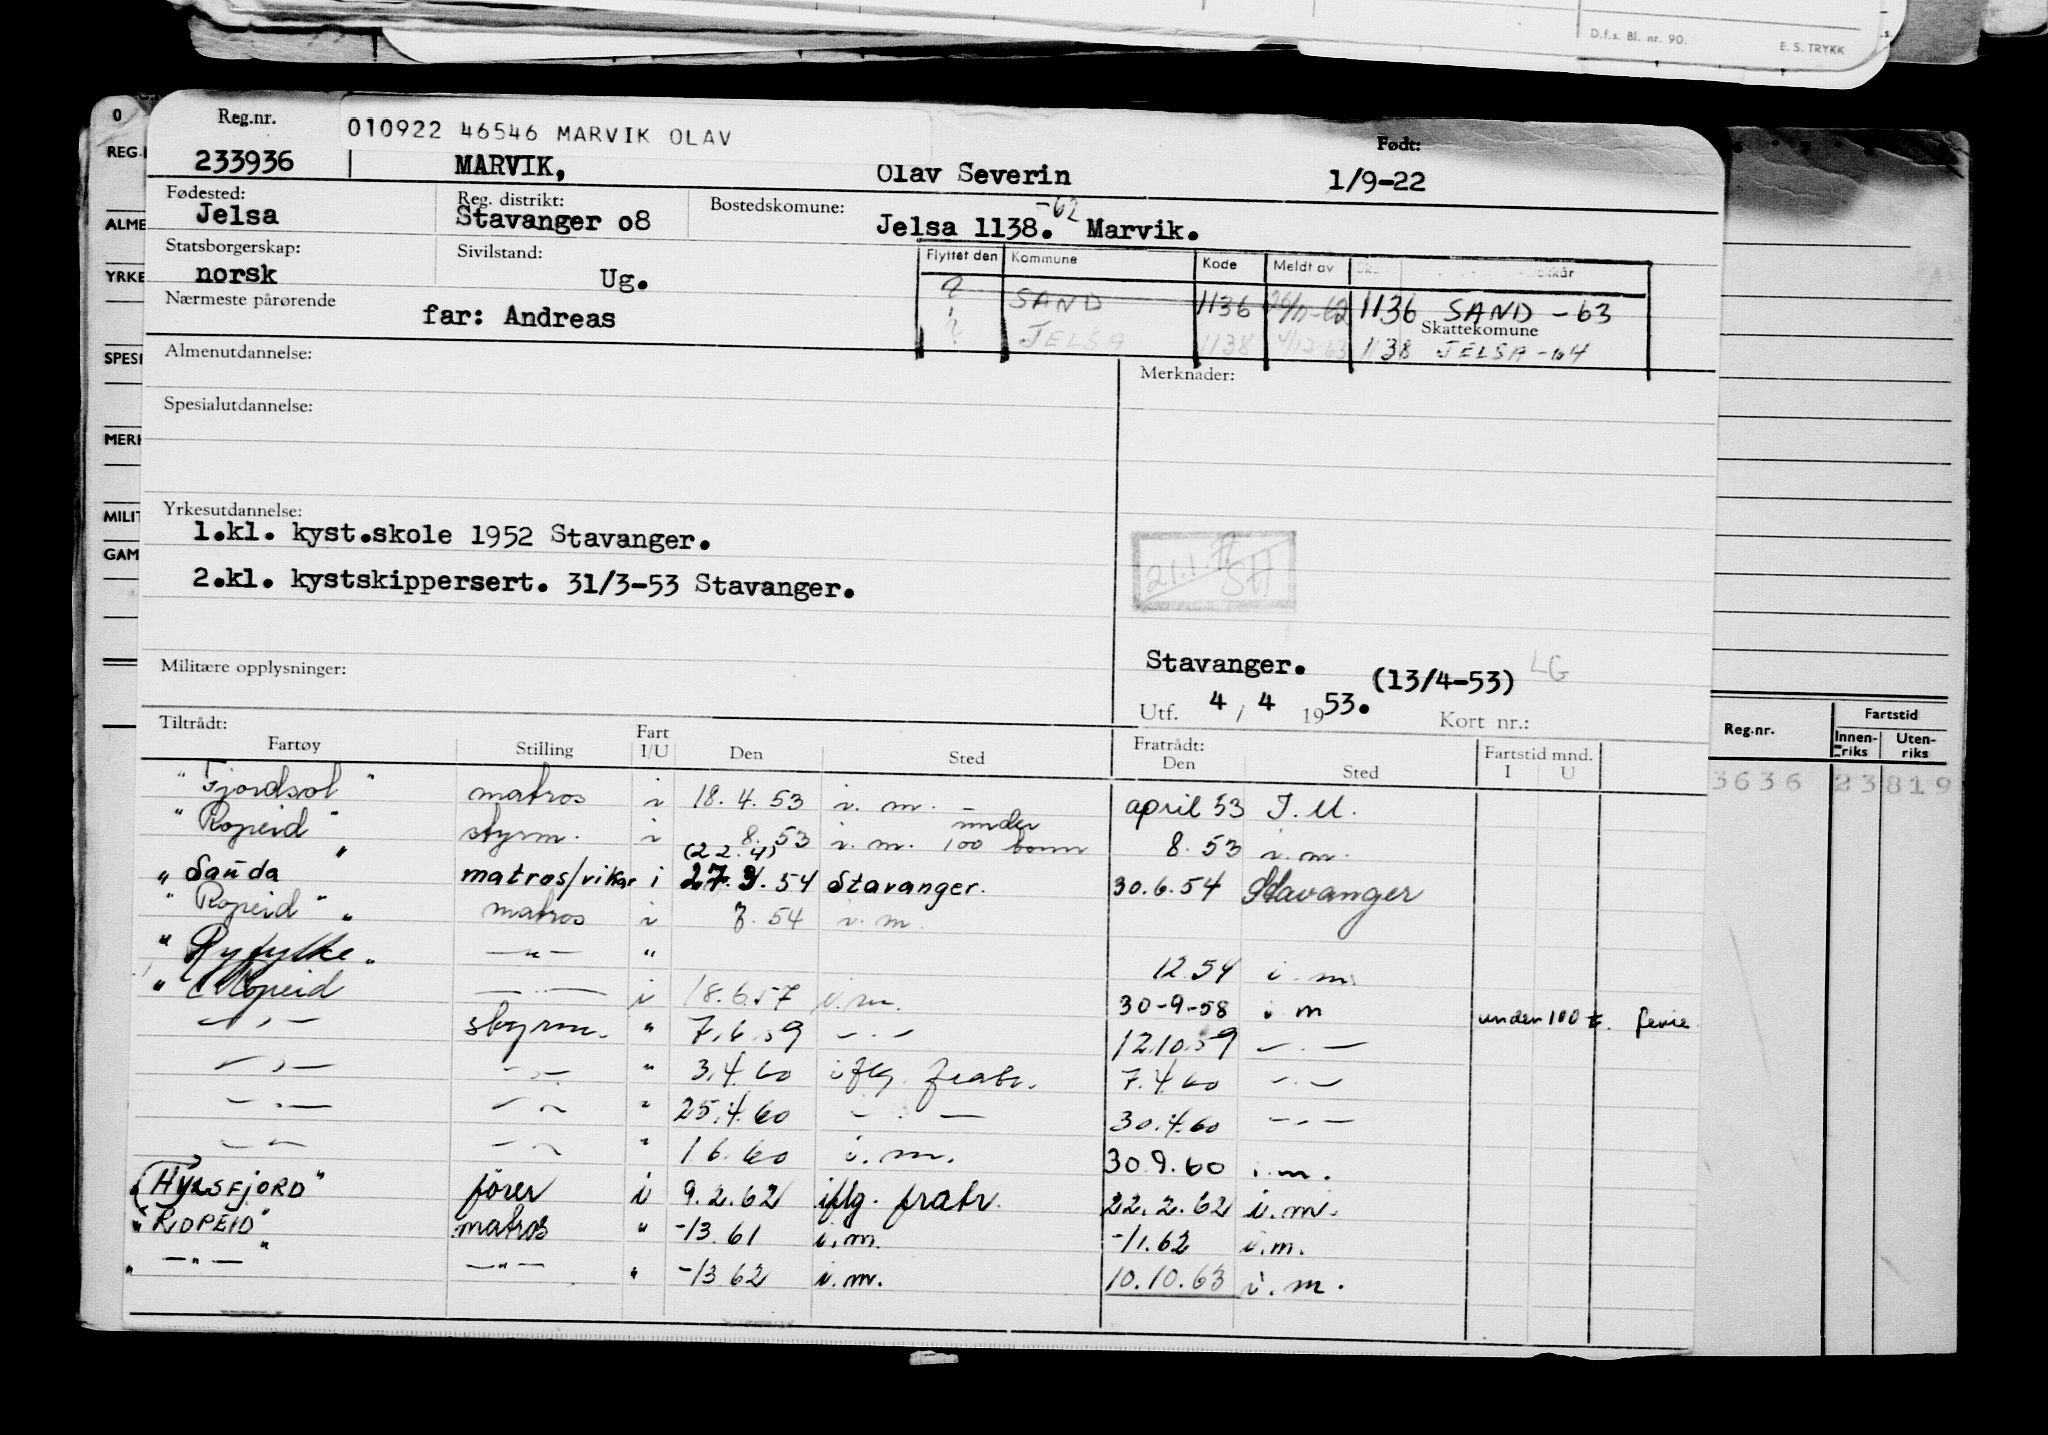 D.f.s. Bl. nr. 90. E. S. TRYKK
Reg.nr. 010922 46546 MARVIK OLAV Født:
233936 MARVIK, Olav Severin 1/9-22
Fødested: Reg. distrikt: Bostedskomune: -62
Jelsa Stavanger o8 Jelsa 1138. Marvik.
Statsborgerskap: Sivilstand: Flyttet den Kommune Kode Meldt av
norsk Ug.
Nærmeste pårørende SAND 1136 1136 SAND - 63
far: Andreas Skattekomune
JELSA 1138 4/12-63 1138 JELSA - 64
Almenutdannelse: Merknader:
Spesialutdannelse:
Yrkesutdannelse:
1.kl. kyst.skole 1952 Stavanger.
2.kl. kystskippersert. 31/3-53 Stavanger.
Militære opplysninger: Stavanger. (13/4-53) LG
Utf. 4 / 4 1953. Kort nr.:
Tiltrådt: Fratrådt:
Fartøy Stilling Fart I/U Den Sted Den Sted Fartstid mnd. I U
"Fjordsol" matros i 18.4.53 i.m. april 53 I.M.
"Ropeid" styrm. i 8.53 i.m. under 100 tonn 8.53 i.m.
(22.4)
"Sauda" matros/vikar i 27.3.54 Stavanger. 30.6.54 Stavanger
"Ropeid" matros i 54 i.m.
"Ryfylke" —"— " 12.54 i.m.
"Ropeid — i 18.6.57 i.m. 30-9-58 i m under 100 t. ferie.
—"— styrm. " 7.6.59 —"— 12.10.59 —"—
—"— —"— " 3.4.60 iflg. fratr. 7.4.60 —"—
—"— —"— " 25.4.60 —"— 30.4.60 —"—
—"— —"— " 1.6.60 i.m. 30.9.60 i.m.
"HYLSFJORD" fører i 9.2.62 iflg. fratr. 22.2.62 i.m.
"ROPEID" matros " -13.61 i.m. -11.62 i.m.
"—"—" —"— " -13 62 i.m. 10.10.63 i.m.
0
REG.
ALME
YRKE
SPESI
MERK
MILIT
GAM
Reg.nr. Fartstid
Innen-riks Uten-riks
3636 23 819